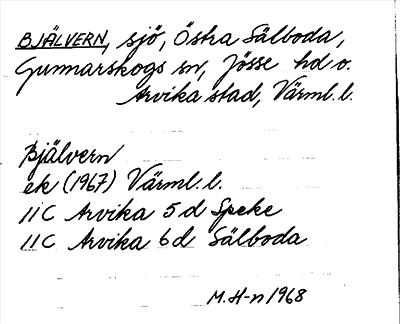 BJÄLVERN, sjö, Östra Sälboda,
Gunnarskogs sn, Jösse hd o.
Arvika stad, Värml. l.
Bjälvern
ek (1967) Värml. l.
11C Arvika 5d Speke
11C Arvika 6d Sälboda
M. H-n 1968